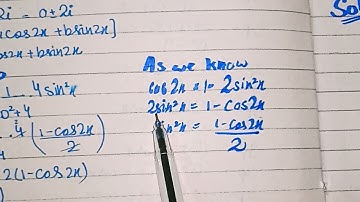 2i = 0 ± 2i
cos2x + b sin2x]
cos2x + b sin2x
1 4sin²x
D²+4
4 (1-cos2x / 2)
2(1-cos2x)
As we know
cos2x = 1- 2sin²x
2sin²x = 1-cos2x
sin²x = 1-cos2x
2
Sol